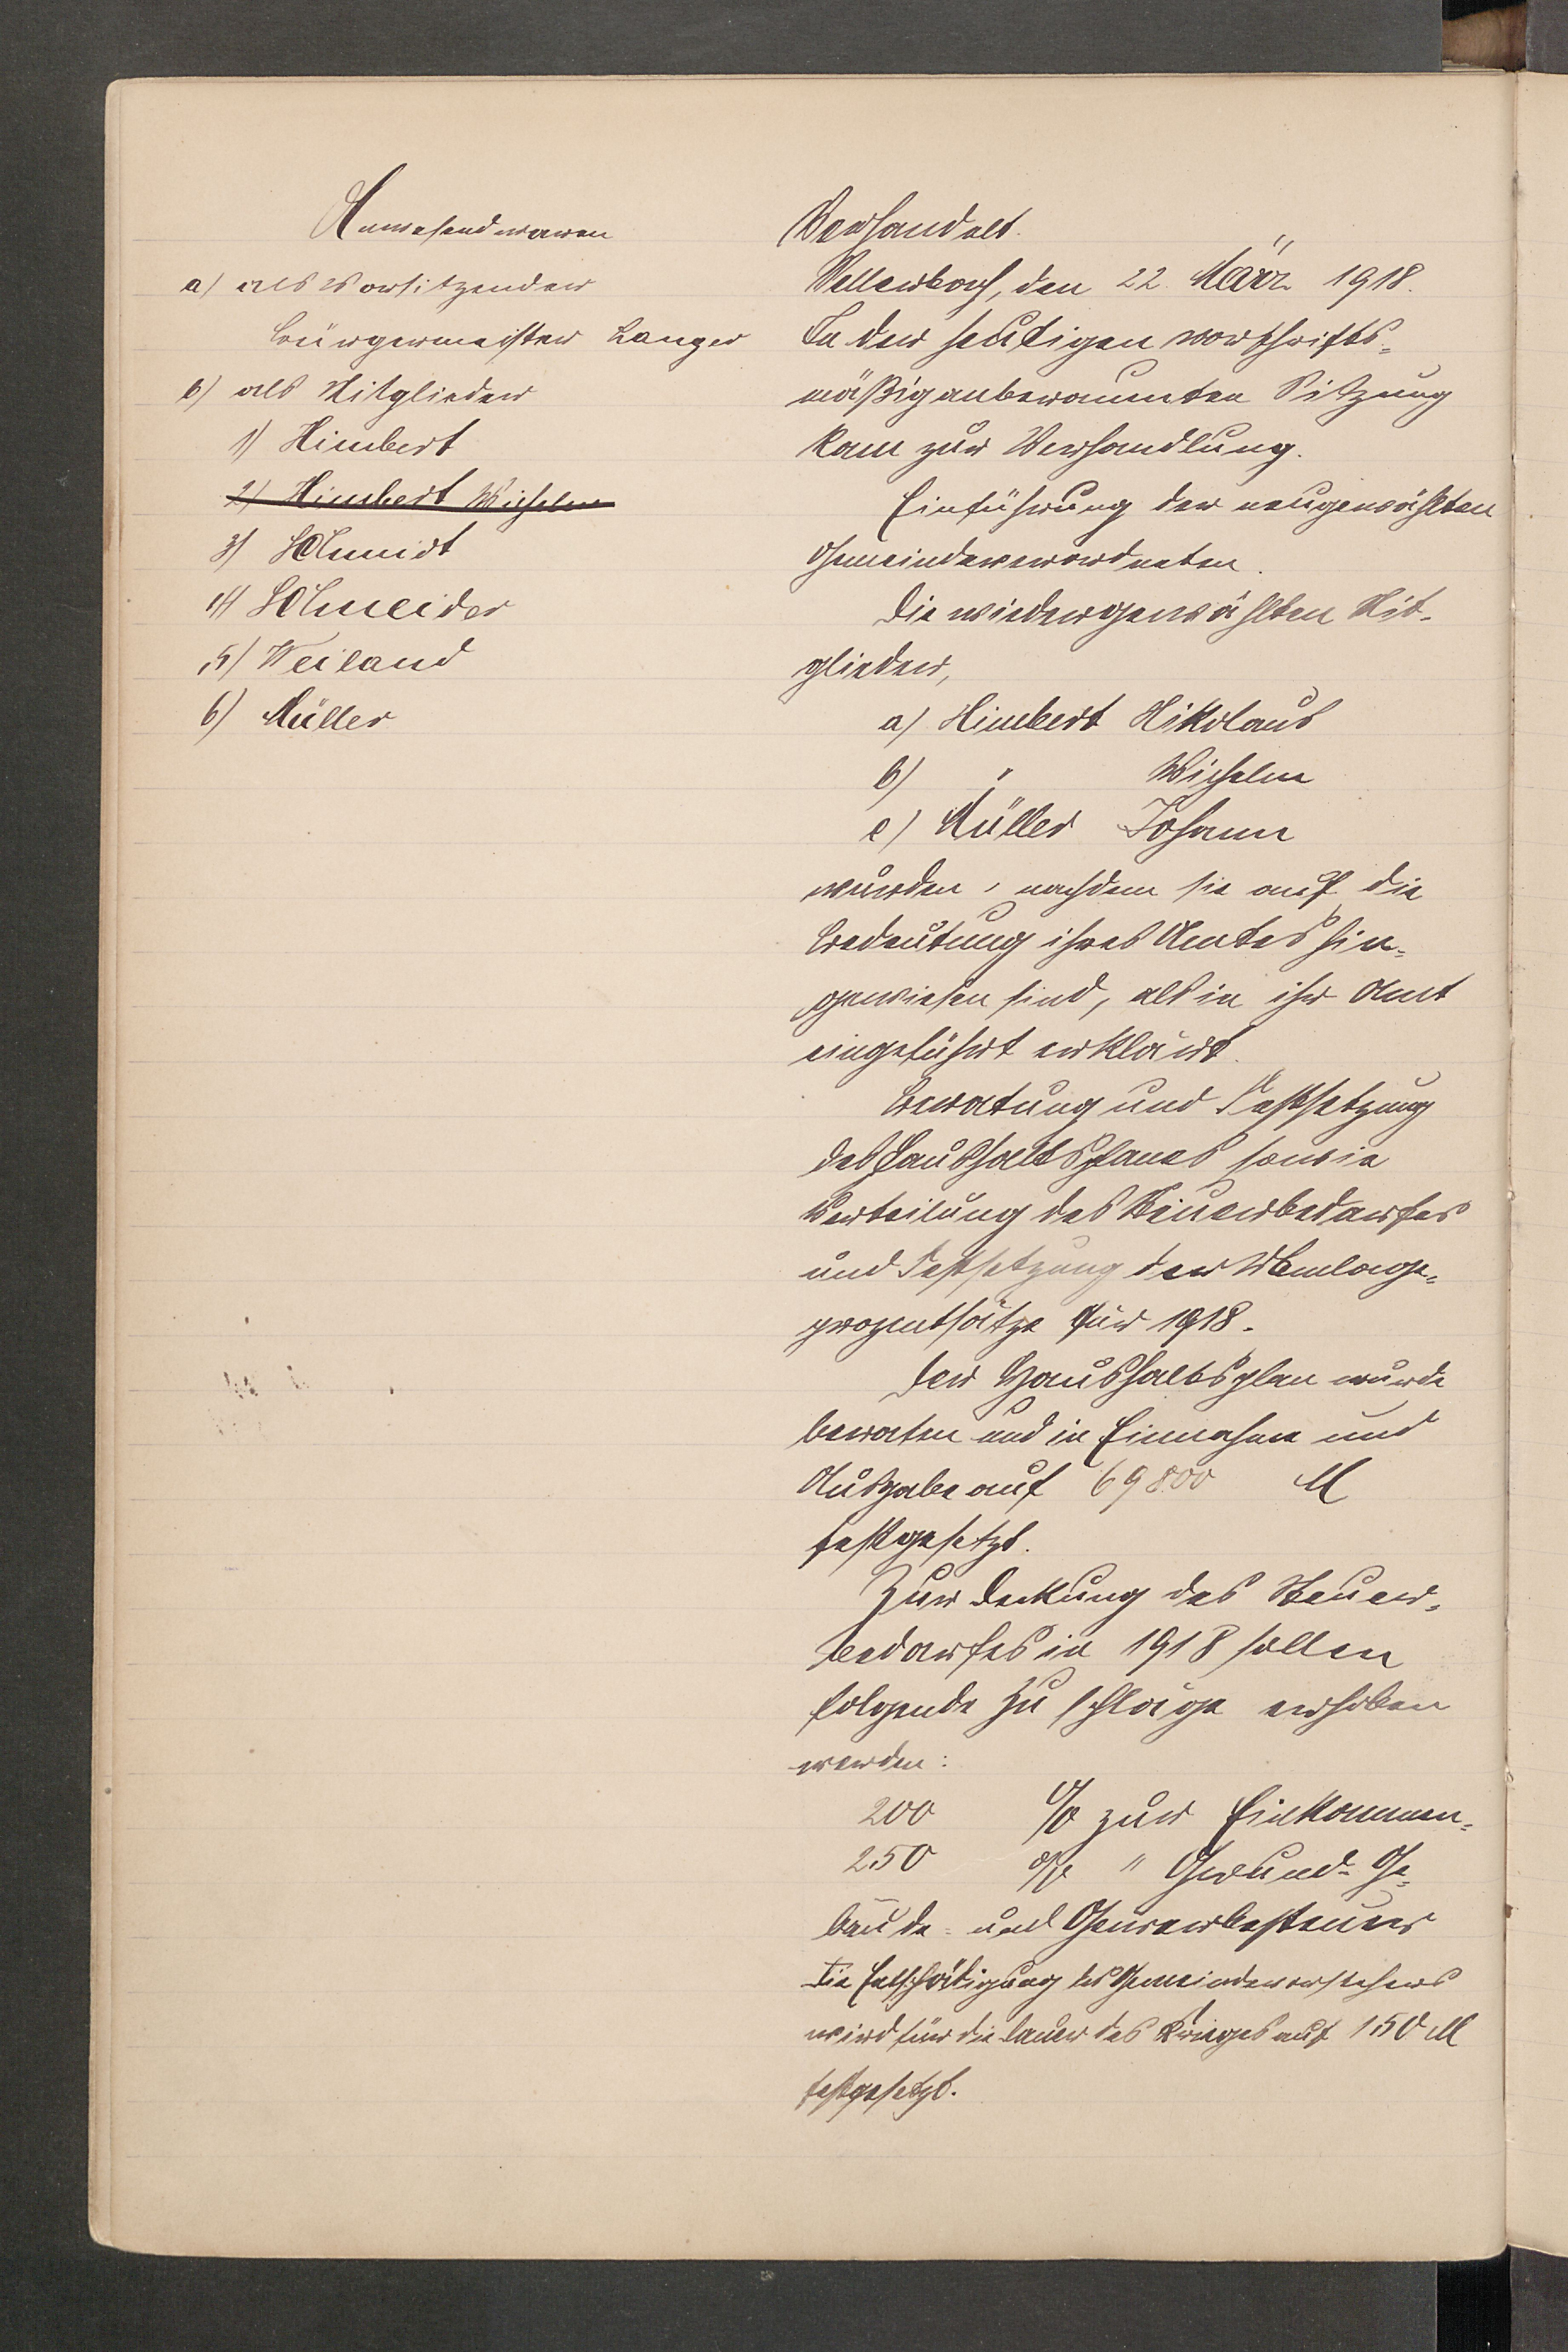 Anwesend waren
a) als Vorsitzender
Bürgermeister Langer
b) als Mitglieder
1) Himbert
2) Himbert Wilhelm
3) Schmidt
4) Schneider
5) Weiland
6) Müller
Verhandelt.
Sellerbach, den 22. März 1918.
In der heutigen vorschrifts-
mäßig anberaumten Sitzung
kam zur Verhandlung.
Einführung der neugewählten
Gemeindeverordneten.
Die wiedergewählten Mit-
glieder,
a) Himbert Nikolaus
b) " Wilhelm
c) Müller Johann
wurden, nachdem sie auf die
Bedeutung ihres Amtes hin-
gewiesen sind, als in ihr Amt
eingeführt erklärt.
Beratung und Festsetzung
des Haushaltsplanes sowie
Verteilung des Steuerbedarfes
und Festsetzung der Umlage-
prozentsätze für 1918.
Der Haushaltsplan wurde
beraten und in Einnahme und
Ausgabe auf 69800 M
festgesetzt.
Zur Deckung des Steuer-
bedarfes in 1918 sollen
folgende Zuschläge erhoben
werden:
200 % zur Einkommen-
250 % " Grund- Ge-
bäude- und Gewerbesteuer
Die Entschädigung des Gemeindevorstehers
wird für die Dauer des Krieges auf 150 M
festgesetzt.